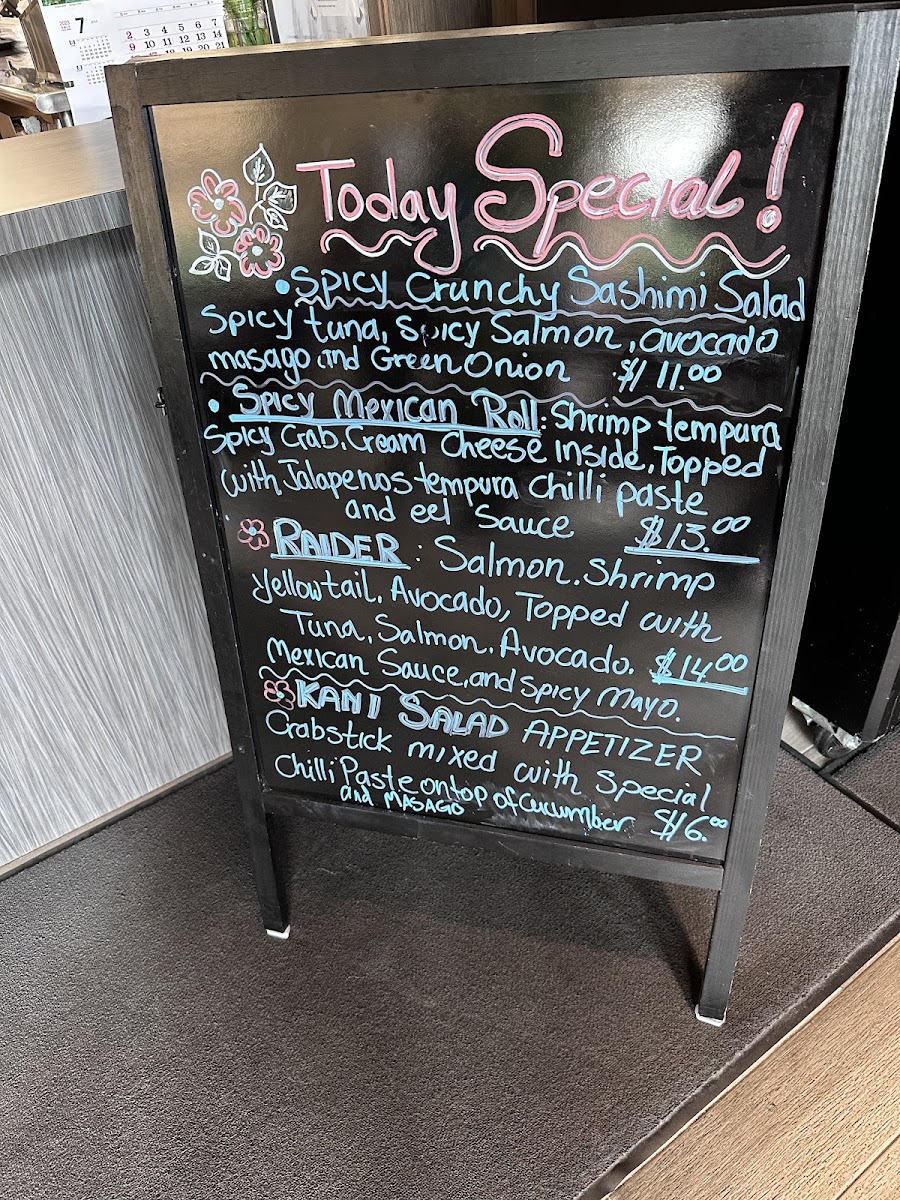 2023
7
2 3 4 5 6 7
9 10 11 12 13 14
Today Special!
• Spicy Crunchy Sashimi Salad
Spicy tuna, Spicy Salmon, avocado
masago and Green Onion $11.00
• Spicy Mexican Roll: Shrimp tempura
Spicy Crab. Cream Cheese Inside, Topped
with Jalapenos tempura chilli paste
and eel Sauce $13.00
RAIDER: Salmon. Shrimp
Yellowtail, Avocado, Topped with
Tuna, Salmon, Avocado. $14.00
Mexican Sauce, and Spicy Mayo.
KANI SALAD APPETIZER
Crabstick mixed with special
Chilli Paste ontop of cucumber $6.00
and MASAGO